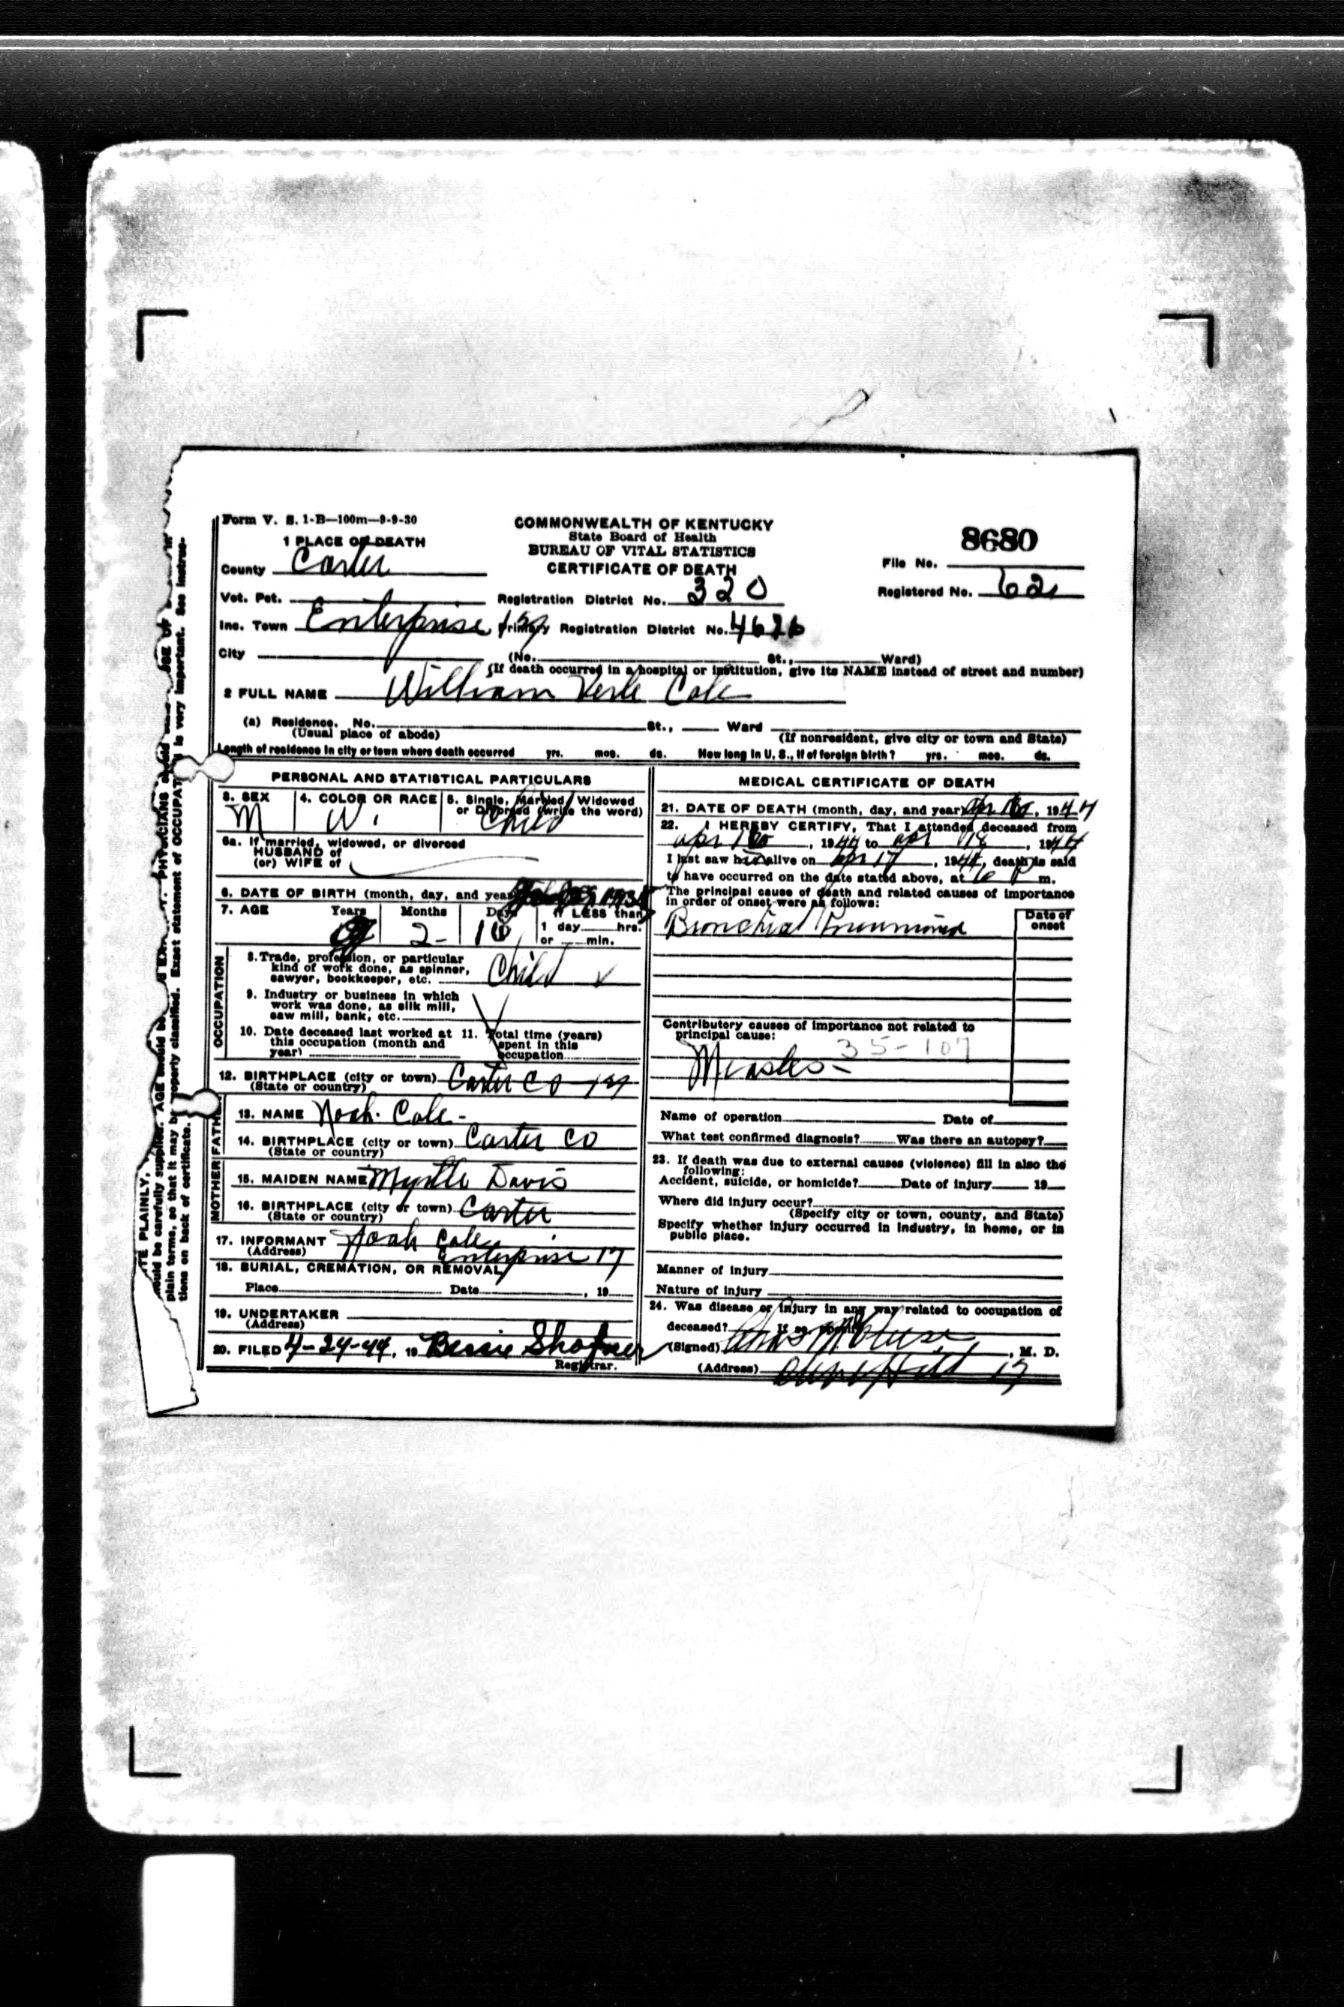 Form V. S. 1-B—100m—9-9-30
COMMONWEALTH OF KENTUCKY
State Board of Health
BUREAU OF VITAL STATISTICS
CERTIFICATE OF DEATH
8680
File No.
Registered No. 62
1 PLACE OF DEATH
County Carter
Vot. Pct.
Registration District No. 320
Inc. Town Enterprise Ky Primary Registration District No.
City (No. St., Ward)
(If death occurred in a hospital or institution, give its NAME instead of street and number)
2 FULL NAME William Verle Cole
(a) Residence. No. St., Ward
(Usual place of abode) (If nonresident, give city or town and State)
Length of residence in city or town where death occurred yrs. mos. ds. How long in U. S., if of foreign birth? yrs. mos. ds.
PERSONAL AND STATISTICAL PARTICULARS
3. SEX M
4. COLOR OR RACE W.
5. Single, Married, Widowed
or Divorced (write the word) Child
5a. If married, widowed, or divorced
HUSBAND of
(or) WIFE of
6. DATE OF BIRTH (month, day, and year)
7. AGE Years Months Days If LESS than
2 10 1 day hrs.
or min.
OCCUPATION
8. Trade, profession, or particular
kind of work done, as spinner,
sawyer, bookkeeper, etc. Child
9. Industry or business in which
work was done, as silk mill,
saw mill, bank, etc.
10. Date deceased last worked at
this occupation (month and
year)
11. Total time (years)
spent in this
occupation
12. BIRTHPLACE (city or town) Carter Co Ky
(State or country)
FATHER
13. NAME Noah Cole
14. BIRTHPLACE (city or town) Carter Co
(State or country)
MOTHER
15. MAIDEN NAME Myrtle Davis
16. BIRTHPLACE (city or town) Carter
(State or country)
17. INFORMANT Noah Cole
(Address) Enterprise Ky
18. BURIAL, CREMATION, OR REMOVAL
Place Date , 19
19. UNDERTAKER
(Address)
20. FILED 4-24-44, 19 Bessie Shafner
Registrar.
MEDICAL CERTIFICATE OF DEATH
21. DATE OF DEATH (month, day, and year) Apr , 1944
22. I HEREBY CERTIFY, That I attended deceased from
Apr , 1944 to Apr 18, 1944
I last saw him alive on Apr 17, 1944, death is said
to have occurred on the date stated above, at P m.
The principal cause of death and related causes of importance
in order of onset were as follows:
Date of
onset
Bronchial Pneumonia
Contributory causes of importance not related to
principal cause:
35-107
Measles
Name of operation Date of
What test confirmed diagnosis? Was there an autopsy?
23. If death was due to external causes (violence) fill in also the
following:
Accident, suicide, or homicide? Date of injury 19
Where did injury occur?
(Specify city or town, county, and State)
Specify whether injury occurred in industry, in home, or in
public place.
Manner of injury
Nature of injury
24. Was disease or injury in any way related to occupation of
deceased? If so specify
(Signed) , M. D.
(Address) Olive Hill Ky